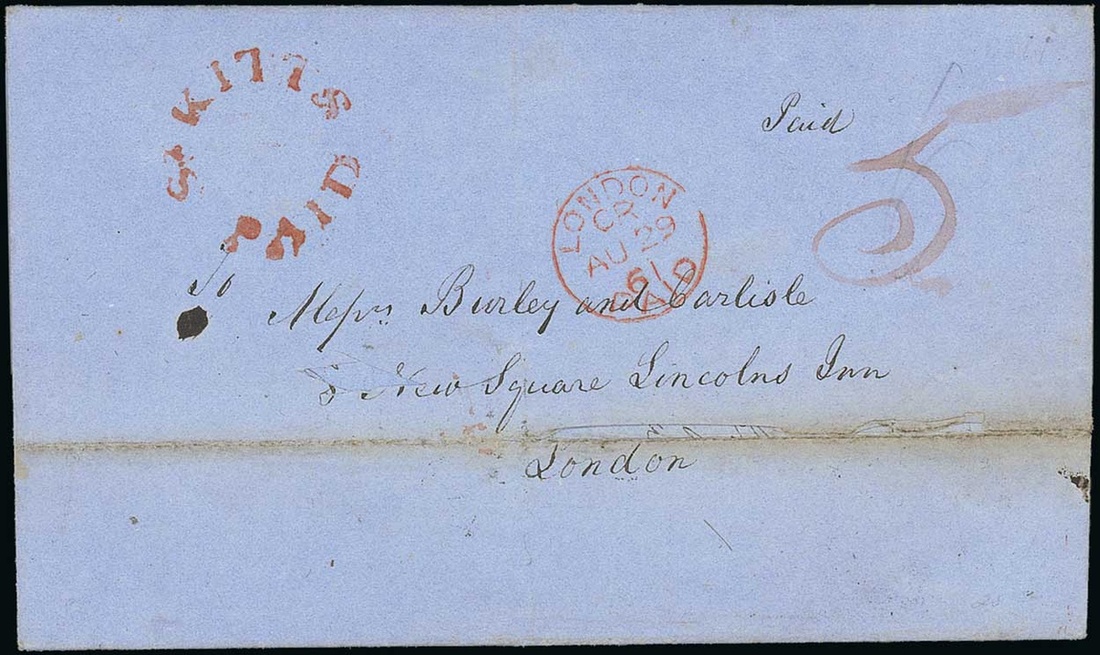 ST KITTS
PAID
Paid
5
LONDON
CR
AU 29
61
PAID
To
Messrs Burley and Carlisle
8 New Square Lincolns Inn
London